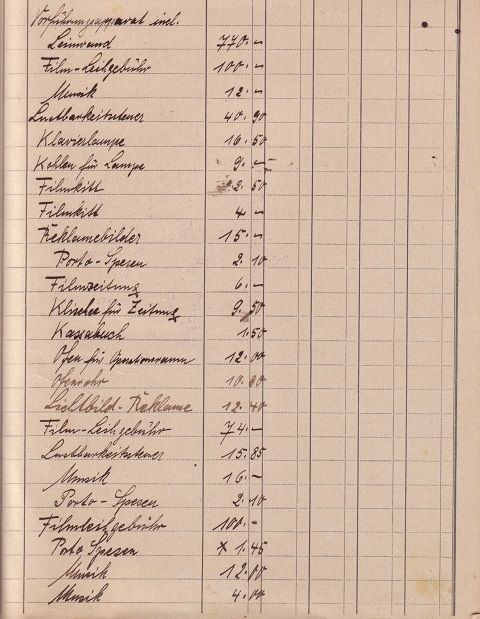 Vorführungsapparat incl.
Leinwand 770.–
Film-Leihgebühr 100.–
Musik 12.–
Lustbarkeitsteuer 40.90
Klavierlampe 16.50
Kohlen für Lampe 9.–
Filmkitt 2.50
Filmkitt 4.–
Reklamebilder 15.–
Porto-Spesen 2.10
Filmzeitung 6.–
Klischee für Zeitung 9.50
Kassabuch 1.50
Ofen für Operationsraum 12.00
Ofenrohr 10.00
Lichtbild-Reklame 12.40
Film-Leihgebühr 74.–
Lustbarkeitsteuer 15.85
Musik 16.–
Porto-Spesen 2.10
Filmleihgebühr 100.–
Porto Spesen × 1.45
Musik 12.00
Musik 4.00